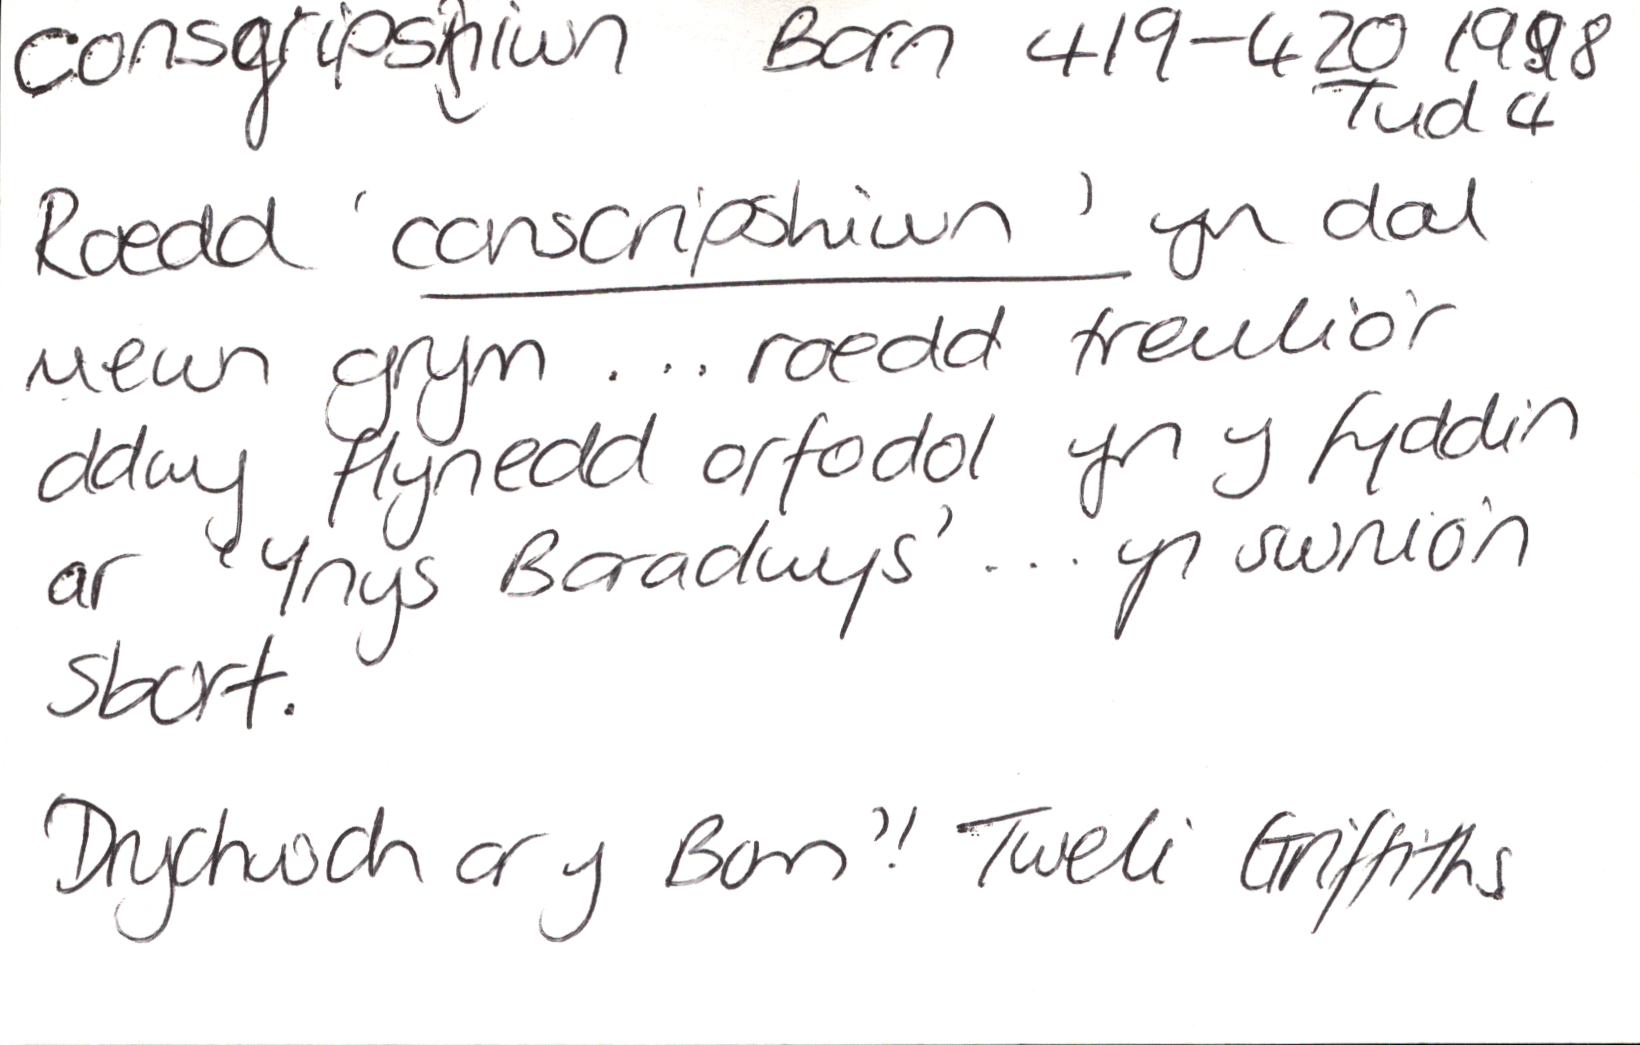 consgripshiwn Barn 419-420 1998
Tud 4
Roedd 'conscripshiwn' yn dal
mewn grym .... roedd treulio'r
ddwy flynedd orfodol yn y fyddin
ar 'Ynys Baradwys' .... yn swnio'n
sbort.
Drychwch ar y Bom'! Tweli Griffiths